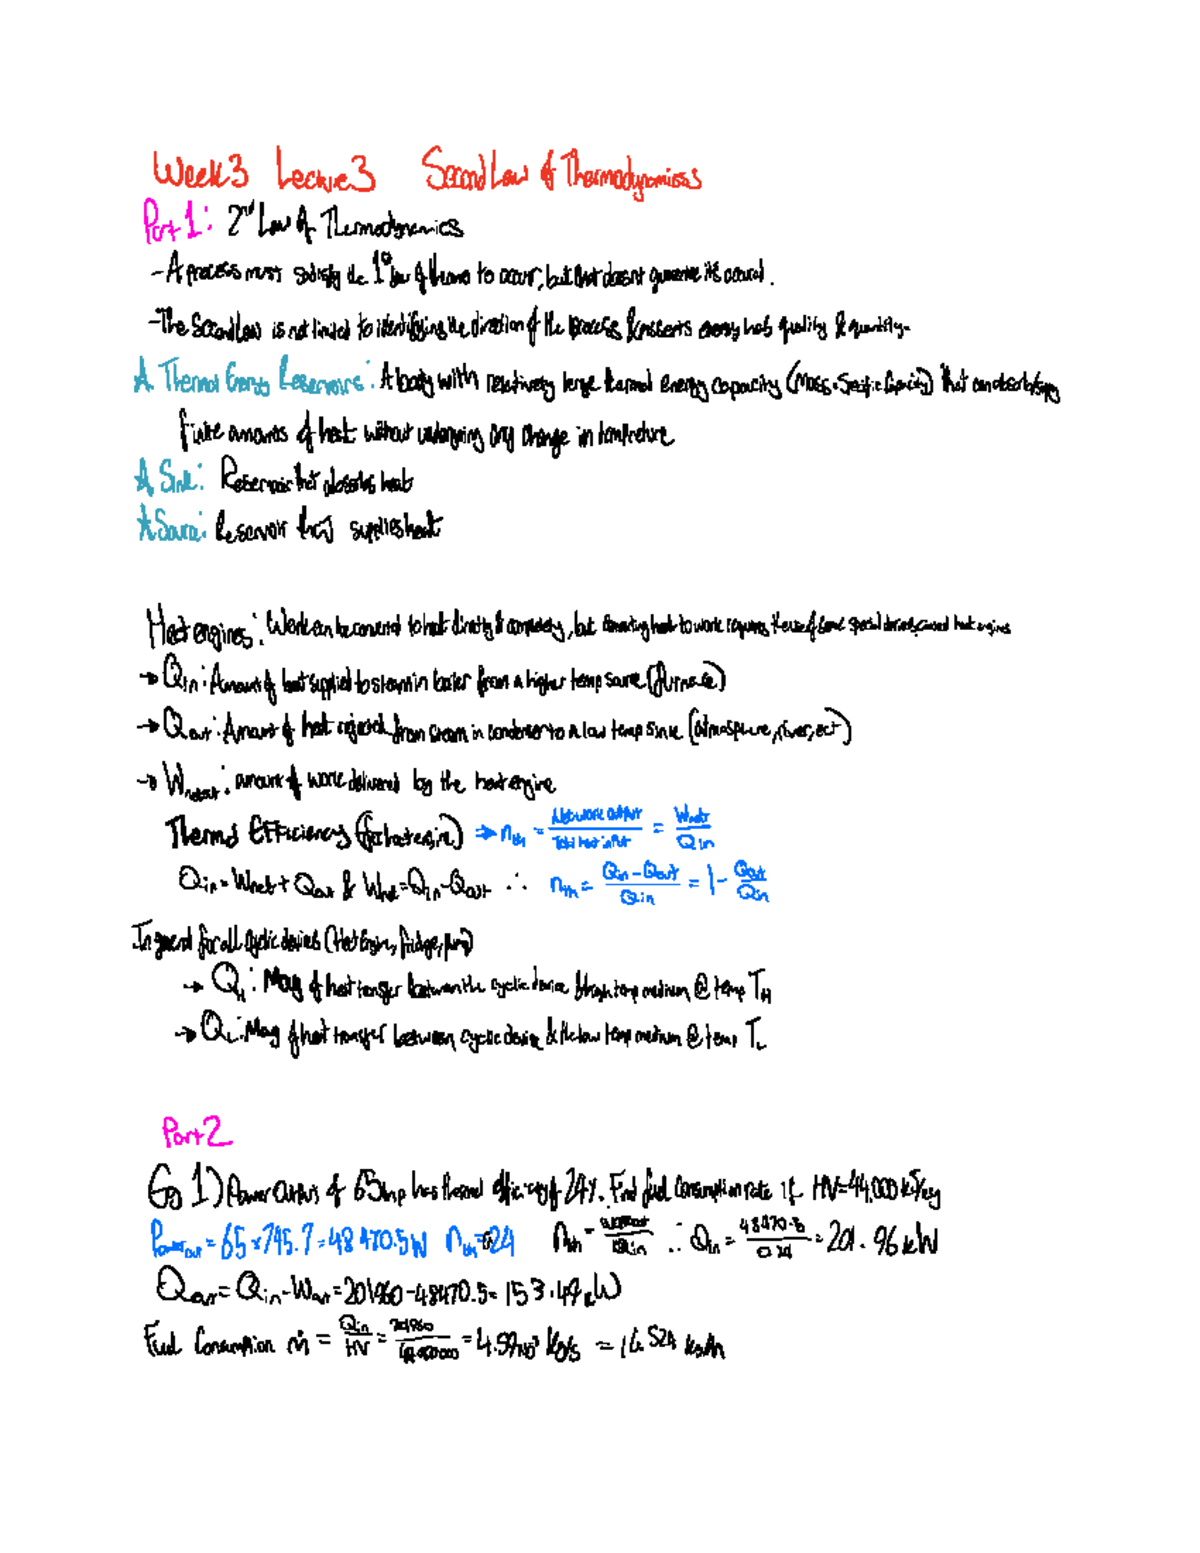 Week 3 Lecture 3 Second Law of Thermodynamics
Part 1: 2nd Law of Thermodynamics
- A process must satisfy the 1st law of thermo to occur, but that doesnt guarantee its occural.
- The Second law is not limited to identifying the direction of the process & asserts energy has quality & quantity.
A Thermal Energy Reservoirs: A body with relatively large thermal energy capacity (Mass × Specific Capacity) that can absorb/supply
finite amounts of heat without undergoing any change in temperature
A Sink: Reservoir that absorbs heat
A Source: Reservoir that supplies heat
Heat engines: Work can be converted to heat directly & completely, but converting heat to work requires the use of some special devices, called heat engines
→ Qin: Amount of heat supplied to steam in boiler from a higher temp source (furnace)
→ Qout: Amount of heat rejected from steam in condenser to a low temp sink (atmosphere, river, ect)
→ Wnetout: amount of work delivered by the heat engine
Thermal Efficiency (for heat engine) ⇒ nth = Net work output / Total heat input = Wnet / Qin
Qin = Wnet + Qout & Wnet = Qin - Qout ∴ nth = Qin - Qout / Qin = 1 - Qout / Qin
In general for all cyclic devices (Heat Engine, fridge, pump)
→ QH: Mag of heat transfer between the cyclic device & high temp medium @ temp TH
→ QL: Mag of heat transfer between cyclic device & the low temp medium @ temp TL
Part 2
Eg 1) Power Output of 65hp has thermal efficiency of 24%. Find fuel consumption rate if HV=44,000 kJ/kg
Powerout = 65 × 745.7 = 48 470.5W nth = 24 nth = Wnetout / Qin ∴ Qin = 48470.5 / 0.24 = 201.96 kW
Qout = Qin - Wout = 201960 - 48470.5 = 153.49 kW
Fuel Consumption ṁ = Qin / HV = 201960 / 44000000 = 4.59×10⁻³ kg/s = 16.524 kg/h